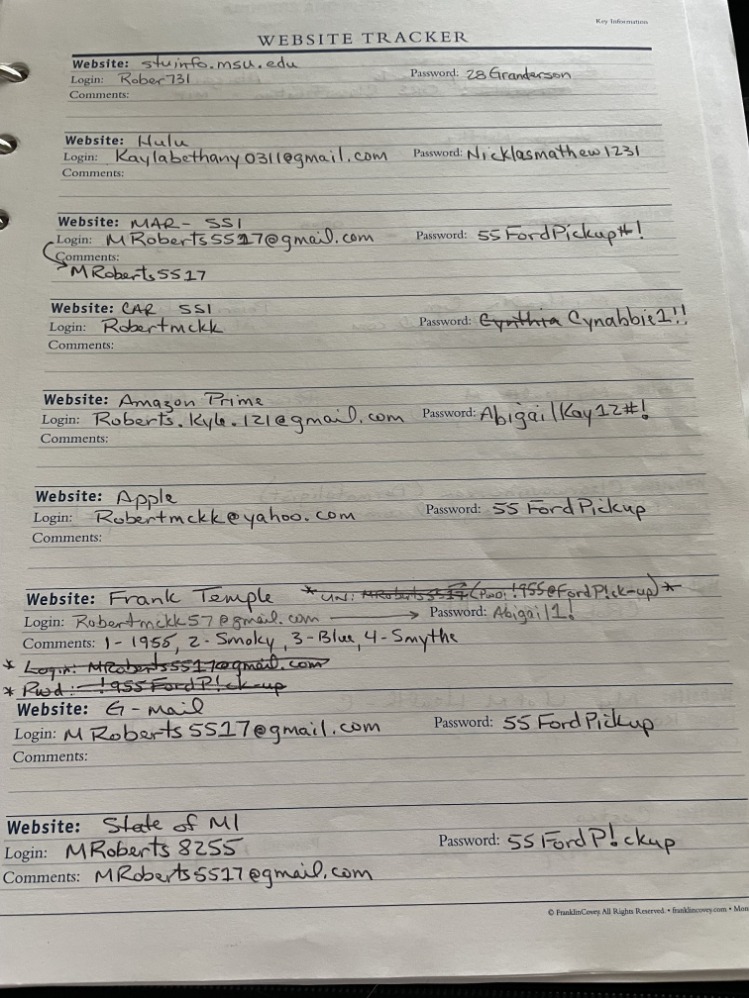 Key Information
WEBSITE TRACKER
Website: stuinfo.msu.edu
Login: Rober731 Password: 28Granderson
Comments:
Website: Hulu
Login: Kaylabethany0311@gmail.com Password: Nicklasmathew1231
Comments:
Website: MAR- SSI
Login: MRoberts5517@gmail.com Password: 55FordPickup#!
Comments:
MRoberts5517
Website: CAR SSI
Login: Robertmckk Password: Cynthia Cynabbie1!!
Comments:
Website: Amazon Prime
Login: Roberts.Kyle.121@gmail.com Password: AbigailKay12#!
Comments:
Website: Apple
Login: Robertmckk@yahoo.com Password: 55FordPickup
Comments:
Website: Frank Temple *UN: MRoberts5517 (PWD: !955@FordP!ck-up)*
Login: Robertmckk57@gmail.com Password: Abigail1!
Comments: 1-1955, 2-Smoky, 3-Blue, 4-Smythe
* Login: MRoberts5517@gmail.com
* Pwd: !955FordP!ck-up
Website: G-mail
Login: MRoberts5517@gmail.com Password: 55FordPickup
Comments:
Website: State of MI
Login: MRoberts8255 Password: 55FordP!ckup
Comments: MRoberts5517@gmail.com
© FranklinCovey. All Rights Reserved. • franklincovey.com • Mon